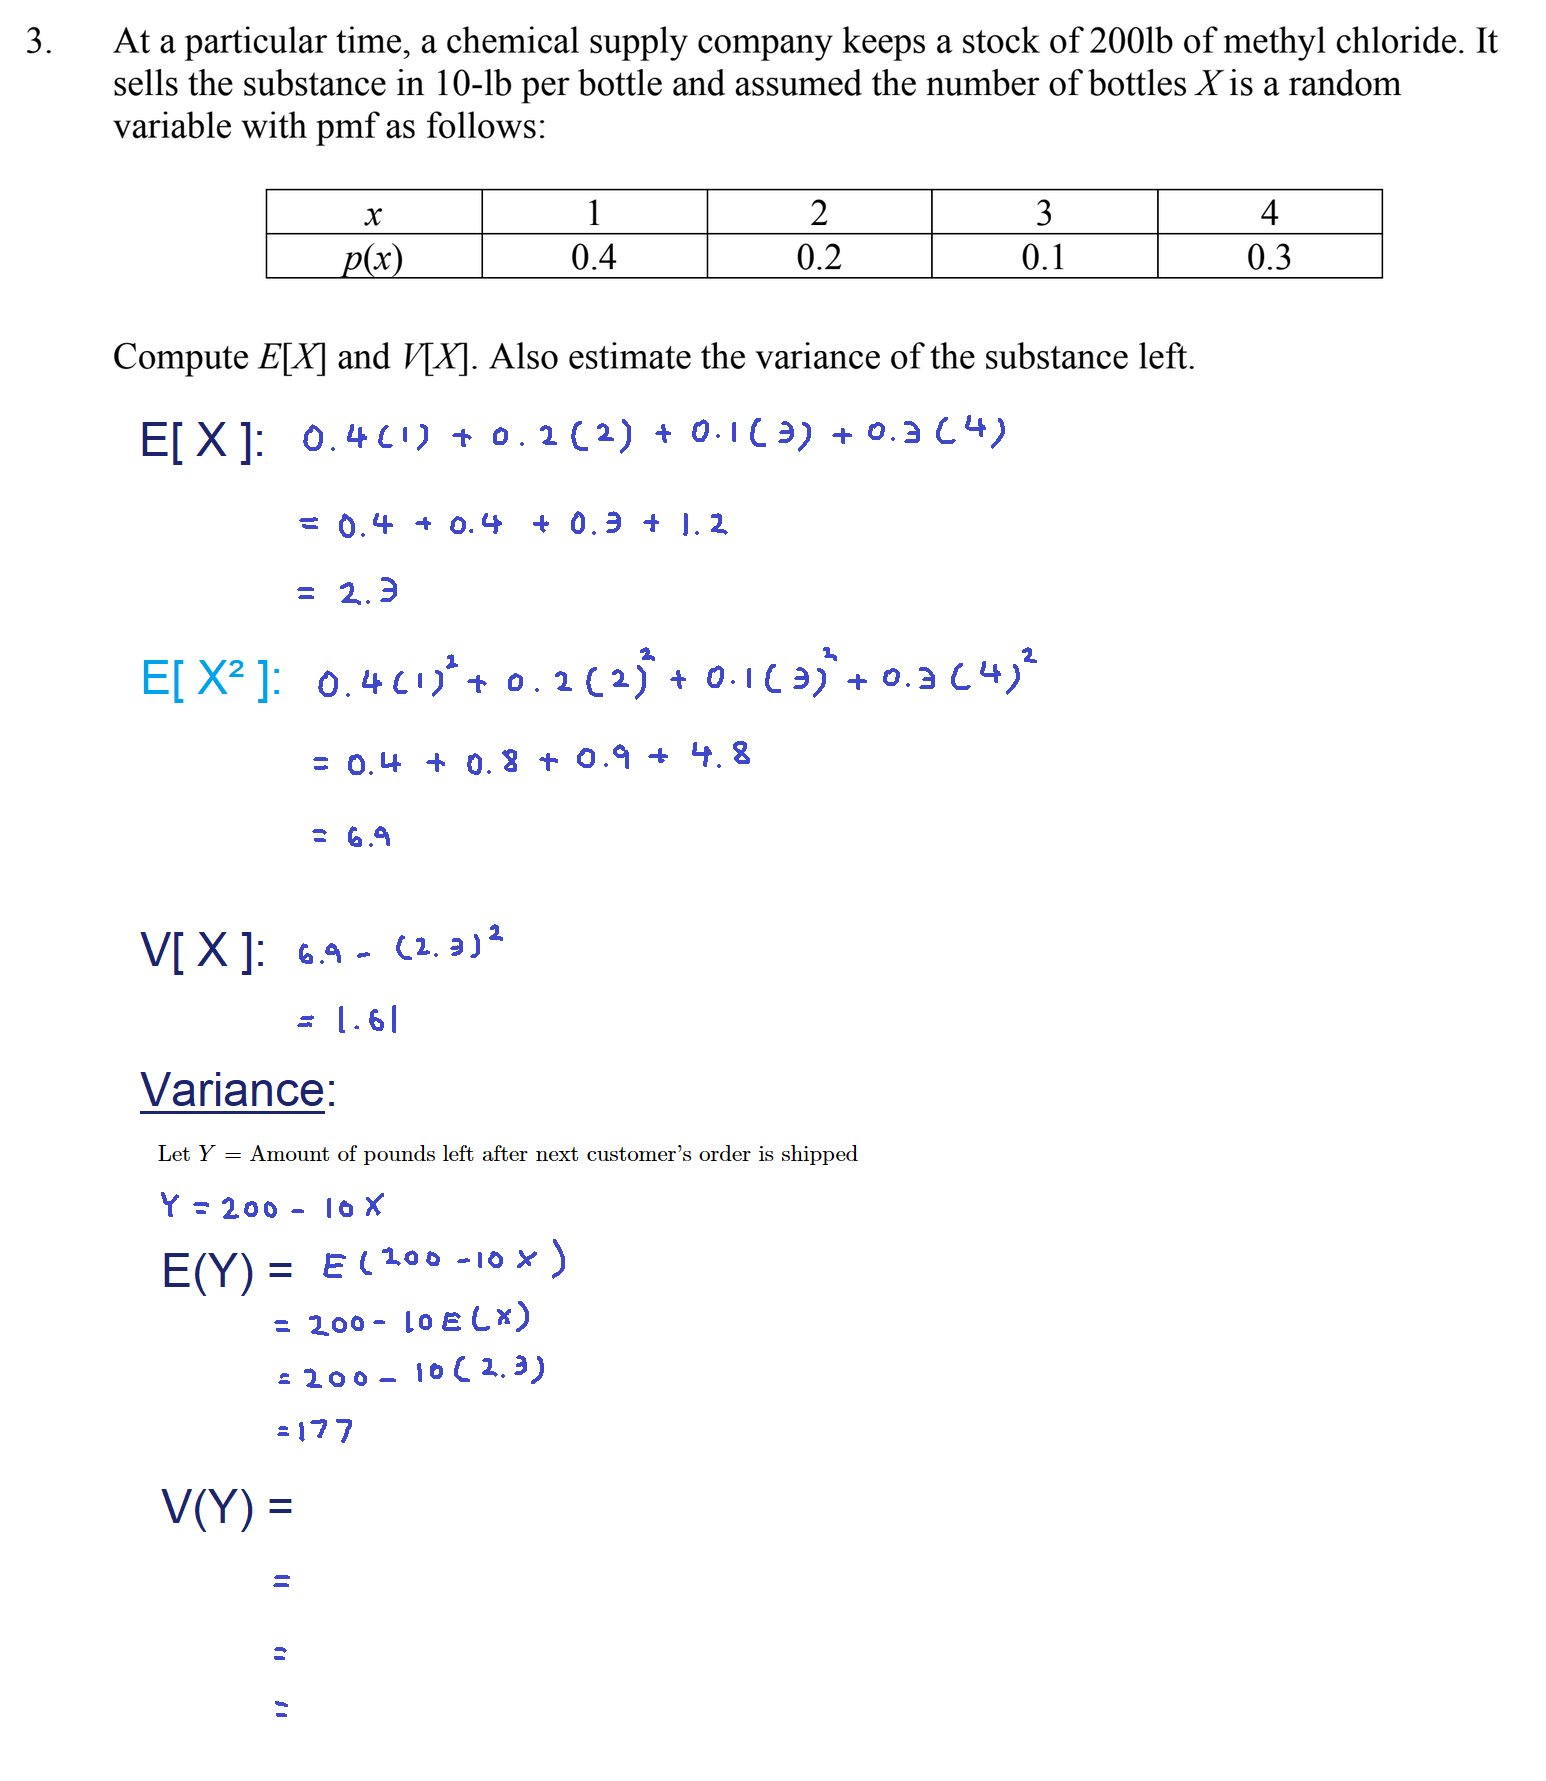 3. At a particular time, a chemical supply company keeps a stock of 200lb of methyl chloride. It
sells the substance in 10-lb per bottle and assumed the number of bottles X is a random
variable with pmf as follows:
x 1 2 3 4
p(x) 0.4 0.2 0.1 0.3
Compute E[X] and V[X]. Also estimate the variance of the substance left.
E[ X ]: 0.4(1) + 0.2(2) + 0.1(3) + 0.3(4)
= 0.4 + 0.4 + 0.3 + 1.2
= 2.3
E[ X² ]: 0.4(1)² + 0.2(2)² + 0.1(3)² + 0.3(4)²
= 0.4 + 0.8 + 0.9 + 4.8
= 6.9
V[ X ]: 6.9 - (2.3)²
= 1.61
Variance:
Let Y = Amount of pounds left after next customer's order is shipped
Y = 200 - 10X
E(Y) = E(200 - 10X)
= 200 - 10E(X)
= 200 - 10(2.3)
= 177
V(Y) =
=
=
=